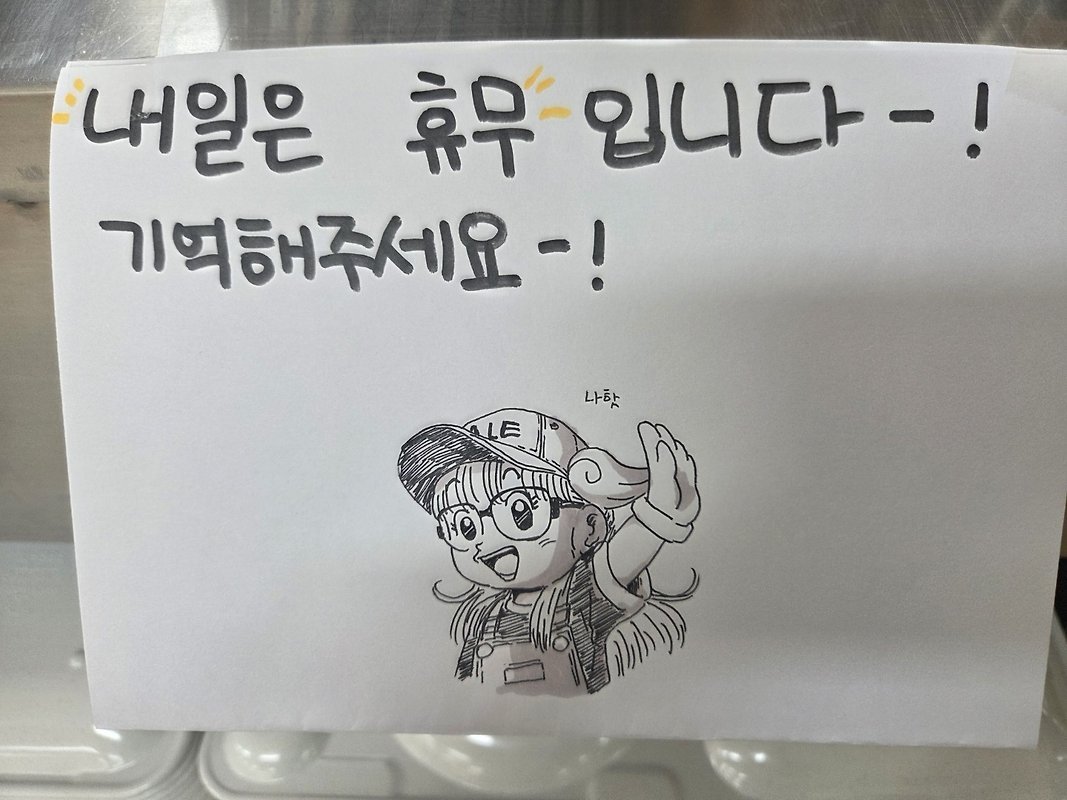 내일은 휴무 입니다-!
기억해주세요-!
나핫
ALE